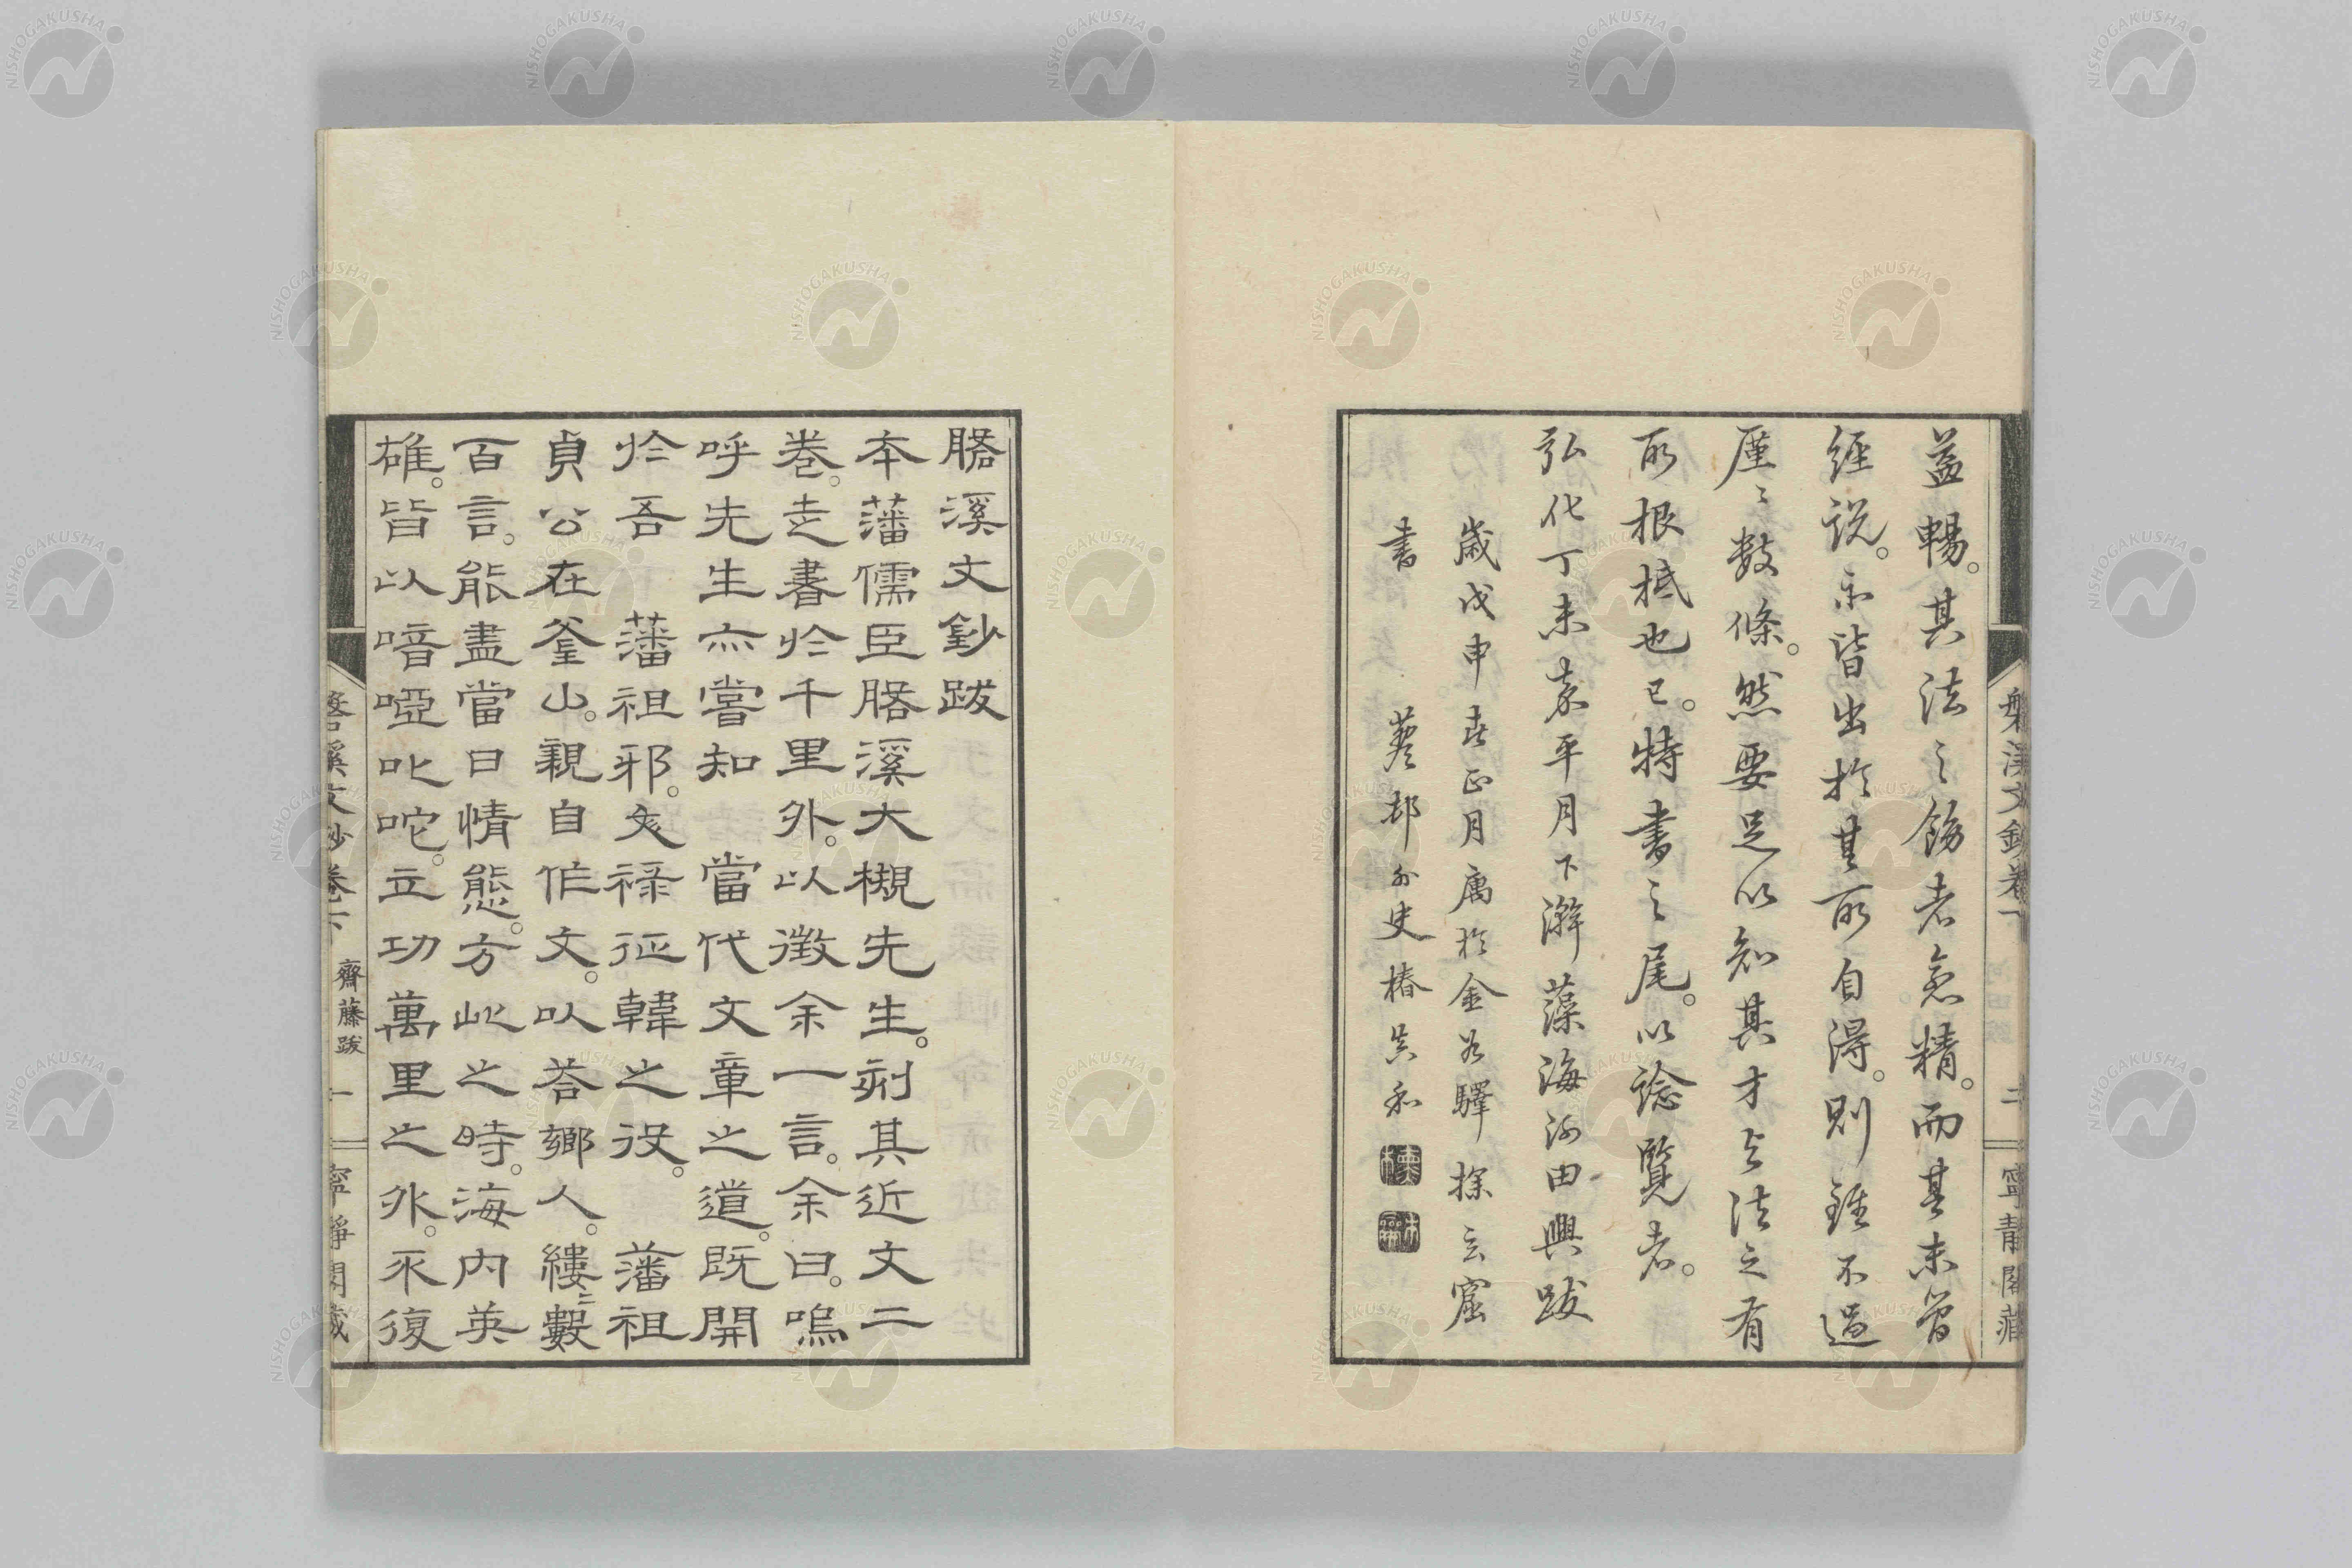 益暢。其法之飭者愈精。而其未曾
經說。亦皆出於其所自得。則雖不過
廑〻數條。然要足以知其才与法之有
所根柢也已。特書之尾。以諗覽者。
弘化丁未嘉平月下澣藻海河田興跋
歲戊申春正月寓於金谷驛探玄窟
書 邨外史椿吳和
磐溪文鈔卷下 二 寧靜閣藏
磐溪文鈔跋
本藩儒臣磐溪大槻先生。刻其近文二
卷。走書於千里外。以徵余一言。余曰。嗚
呼先生亦嘗知 當代文章之道。既開
於吾 藩祖邪。文祿征韓之役。 藩祖
貞公在釜山。親自作文。以荅鄉人。縷〻數
百言。能盡當日情態。方此之時。海內英
雄。皆以喑啞叱咜。立功萬里之外。不復
磐溪文鈔卷下 齋藤跋 一 寧靜閣藏
NISHOGAKUSHA